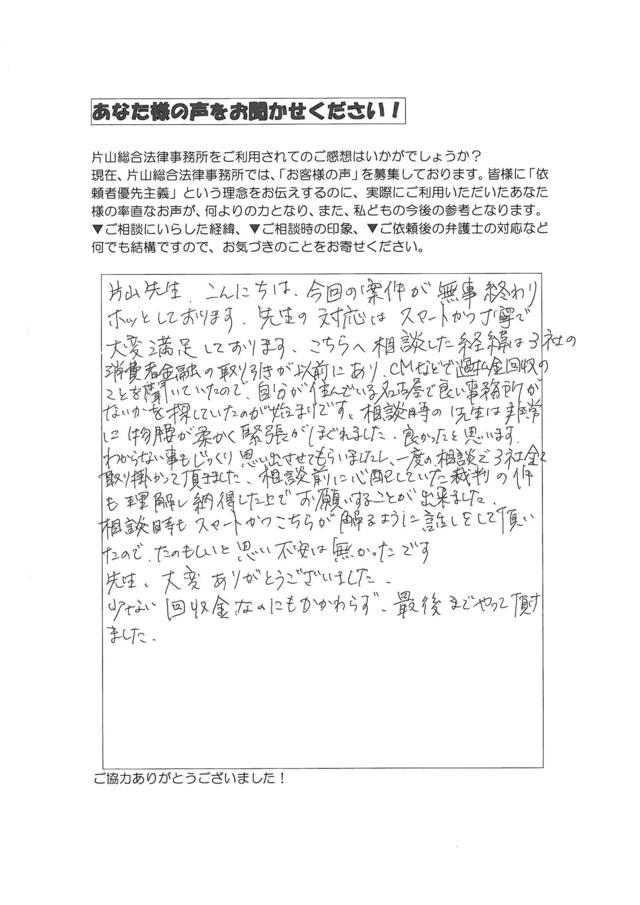 あなた様の声をお聞かせください！
片山総合法律事務所をご利用されてのご感想はいかがでしょうか？
現在、片山総合法律事務所では、「お客様の声」を募集しております。皆様に「依
頼者優先主義」という理念をお伝えするのに、実際にご利用いただいたあなた
様の率直なお声が、何よりの力となり、また、私どもの今後の参考となります。
▼ご相談にいらした経緯、▼ご相談時の印象、▼ご依頼後の弁護士の対応など
何でも結構ですので、お気づきのことをお寄せください。
片山先生、こんにちは、今回の案件が無事終わり
ホッとしております。先生の対応はスマートかつ丁寧で
大変満足しております。こちらへ相談した経緯は3社の
消費者金融の取り引きが以前にあり、CMなどで過払金回収の
ことを聞いていたので、自分が住んでいる名古屋で良い事務所が
ないかを探していたのが始まりです。相談時の先生は非常
に物腰が柔かく緊張がほぐれました。良かったと思います。
わからない事もじっくり思い出させてもらいましたし、一度の相談で3社全て
取り掛かって頂けました。相談前に心配していた裁判の件
も理解し納得した上でお願いすることが出来ました。
相談時もスマートかつこちらが解るように話しをして頂い
たので、たのもしいと思い不安は無かったです
先生、大変ありがとうございました。
少ない回収金なのにもかかわらず、最後までやって頂け
ました。
ご協力ありがとうございました！